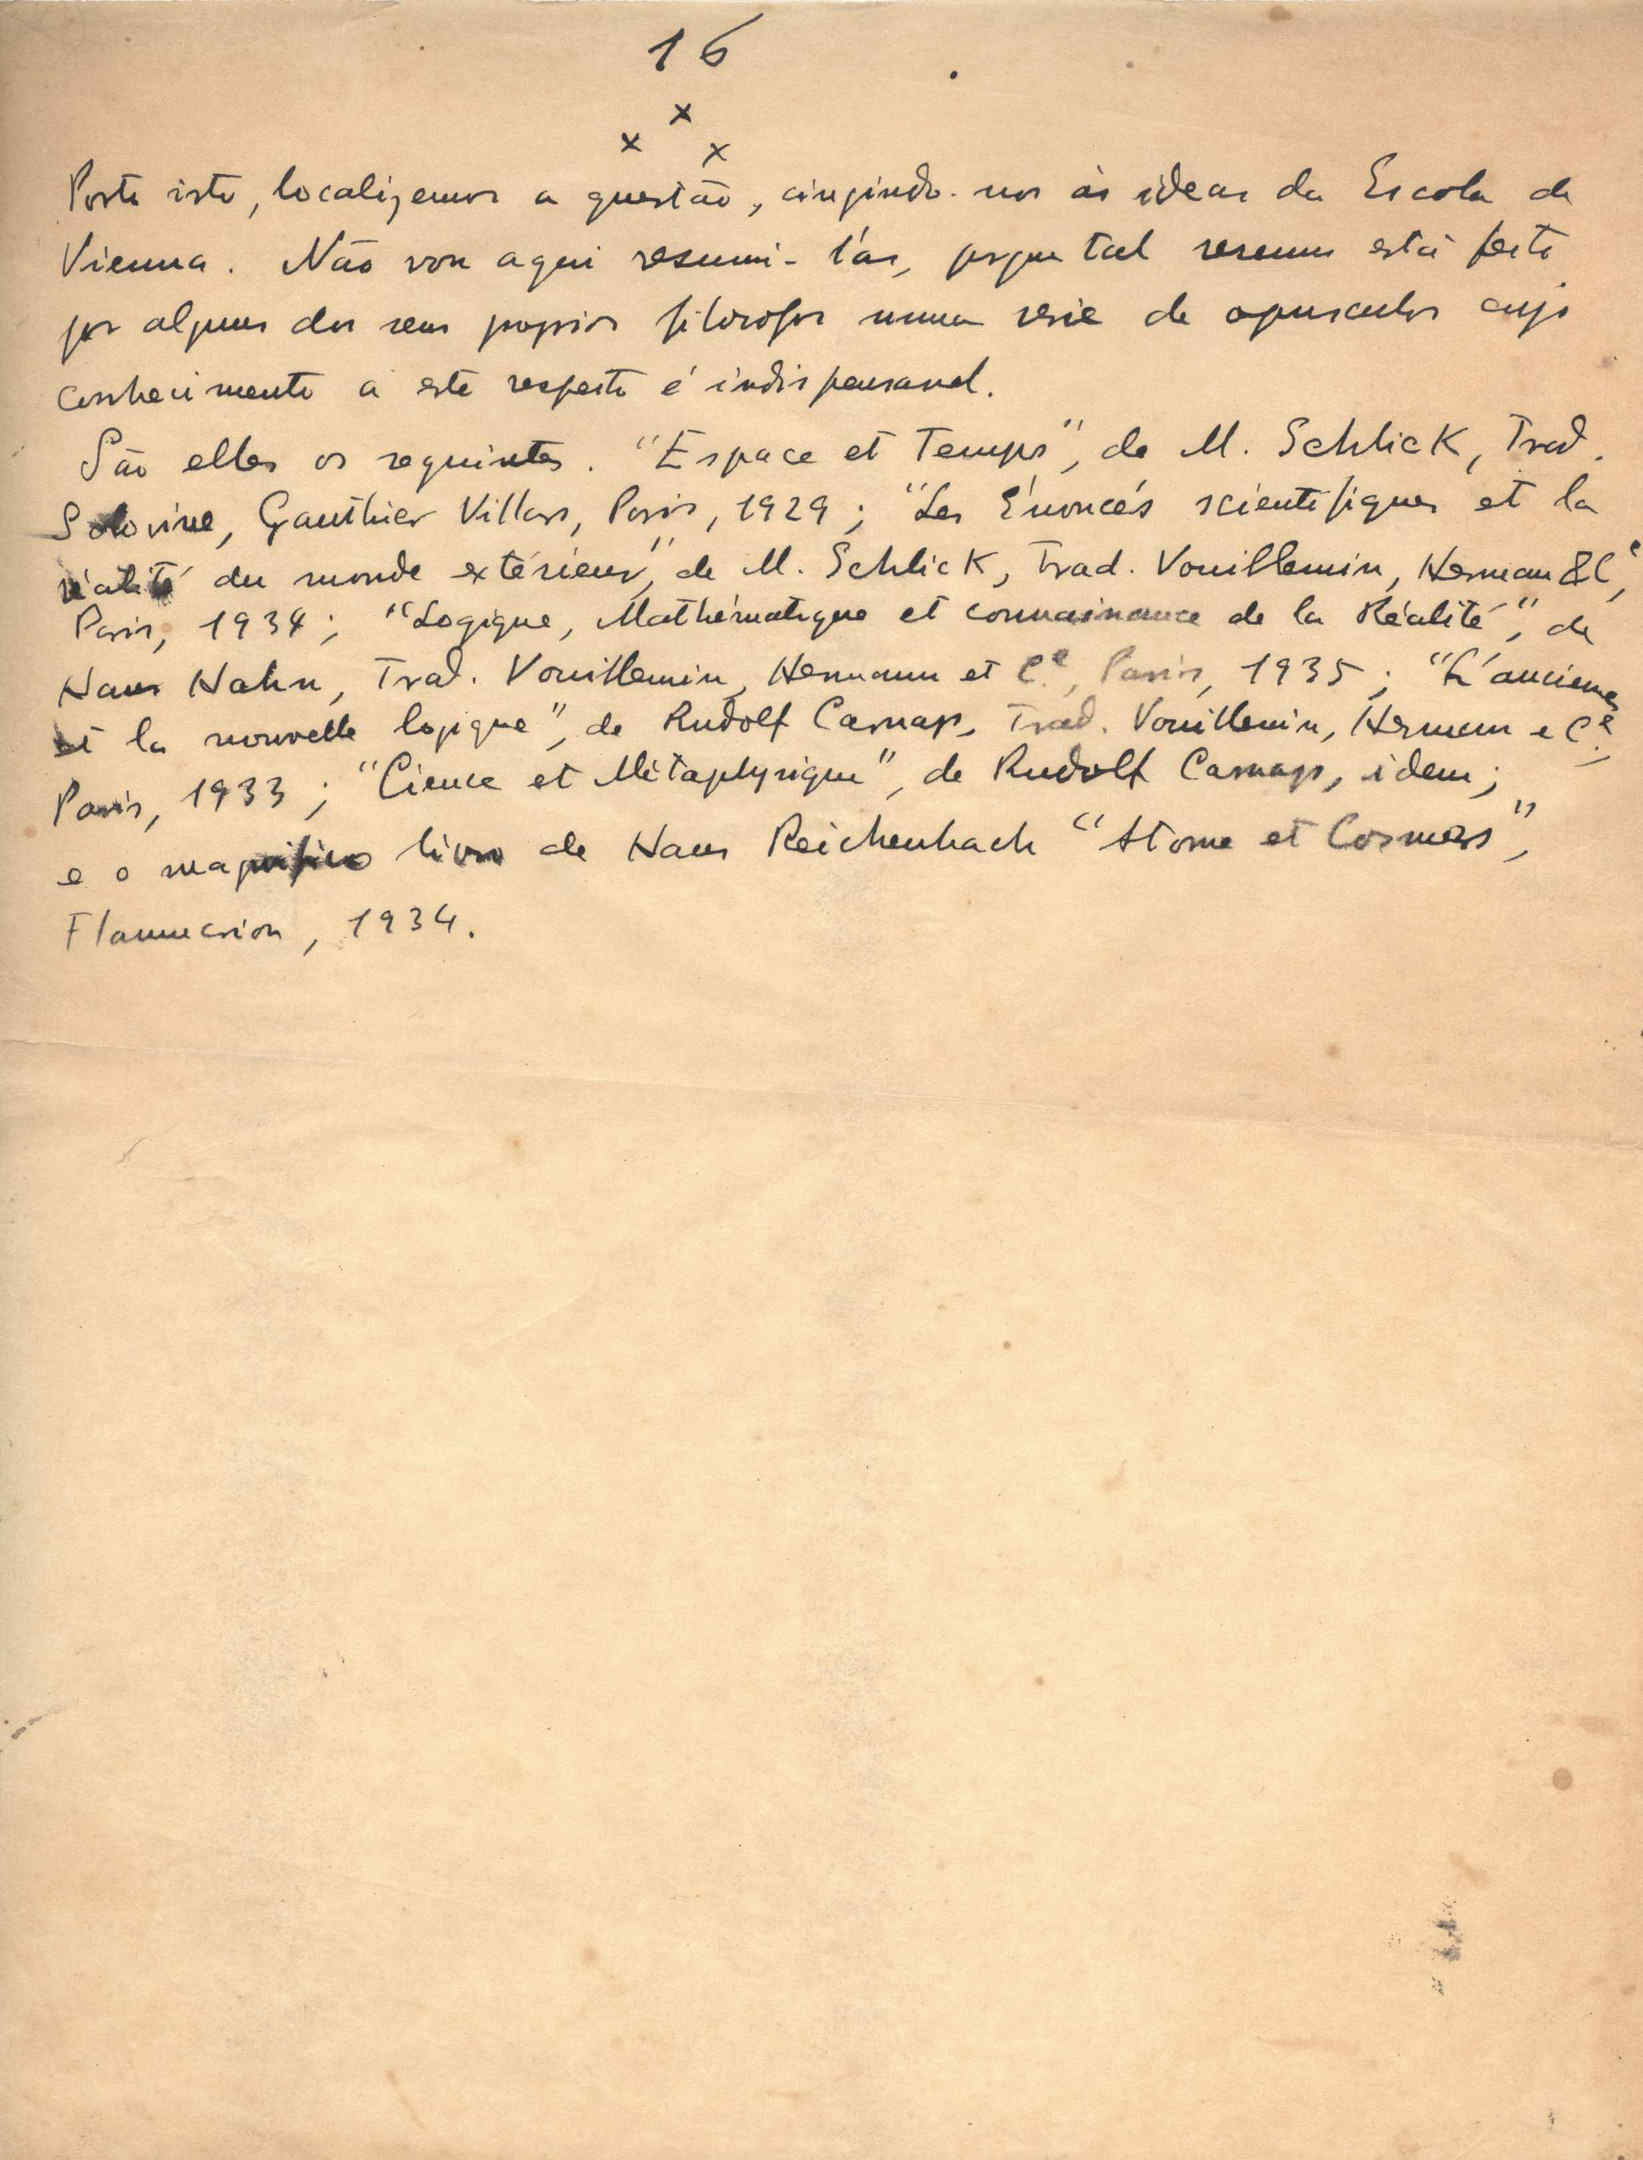 16
x
x x
Posto isto, localizemos a questão, cingindo-nos às ideas da Escola de
Vienna. Não vou aqui resumi-l'as, porque tal resumo está feito
por alguns dos seus proprios filosofos numa serie de opusculos cujo
conhecimento a este respeito é indispensavel.
São elles os seguintes. "Espace et Temps", de M. Schlick, Trad.
Solovine, Gauthier Villars, Paris, 1929; "Les Énoncés scientifiques et la
réalité du monde extérieur", de M. Schlick, Trad. Vouillemin, Herman & Cᵉ,
Paris, 1934; "Logique, Mathématique et connaissance de la Réalité", de
Hans Hahn, Trad. Vouillemin, Hermann et Cᵉ, Paris, 1935; "L'ancienne
et la nouvelle logique", de Rudolf Carnap, Trad. Vouillemin, Hermann e Cᵉ,
Paris, 1933; "Cience et Métaphysique", de Rudolf Carnap, idem;
e o magnifico livro de Hans Reichenbach "Atome et Cosmos",
Flammarion, 1934.